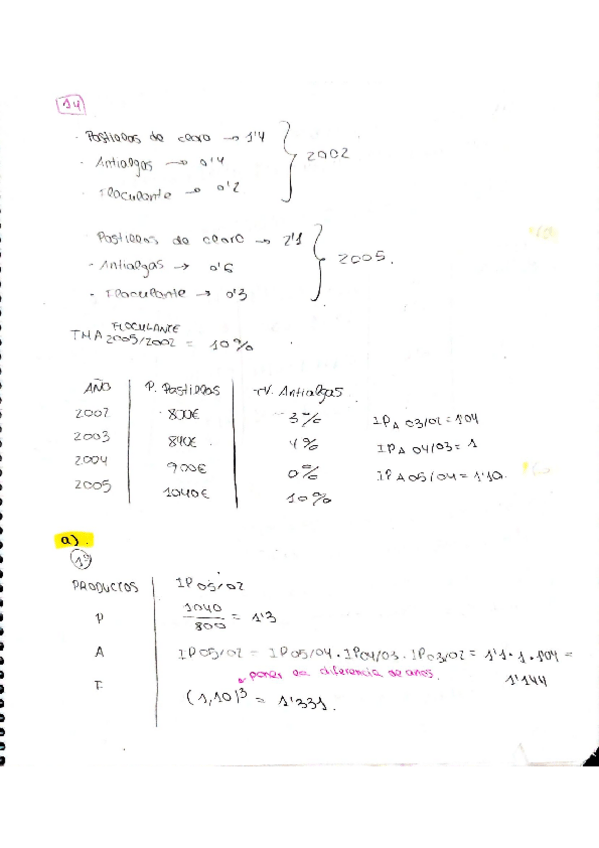 14
· Pastillas de cloro → 1'4
· Antialgas → 0'4
· Floculante → 0'2
2002
Pastillas de cloro → 2'1
· Antialgas → 0'6
· Floculante → 0'3
2005.
TMA FLOCULANTE 2005/2002 = 10%
AÑO P. Pastillas TV. Antialgas
2002 800€ 3% IPA 03/02 = 104
2003 840€ 4% IPA 04/03 = 1
2004 900€ 0% IPA 05/04 = 1'10.
2005 1040€ 10%
a).
1º
PRODUCTOS IP 05/02
P 1040/800 = 1'3
A IP 05/02 = IP 05/04 · IP 04/03 · IP 03/02 = 1'1 · 1 · 1.04 =
1'144
pones la diferencia de años.
F (1,10)³ = 1'331.